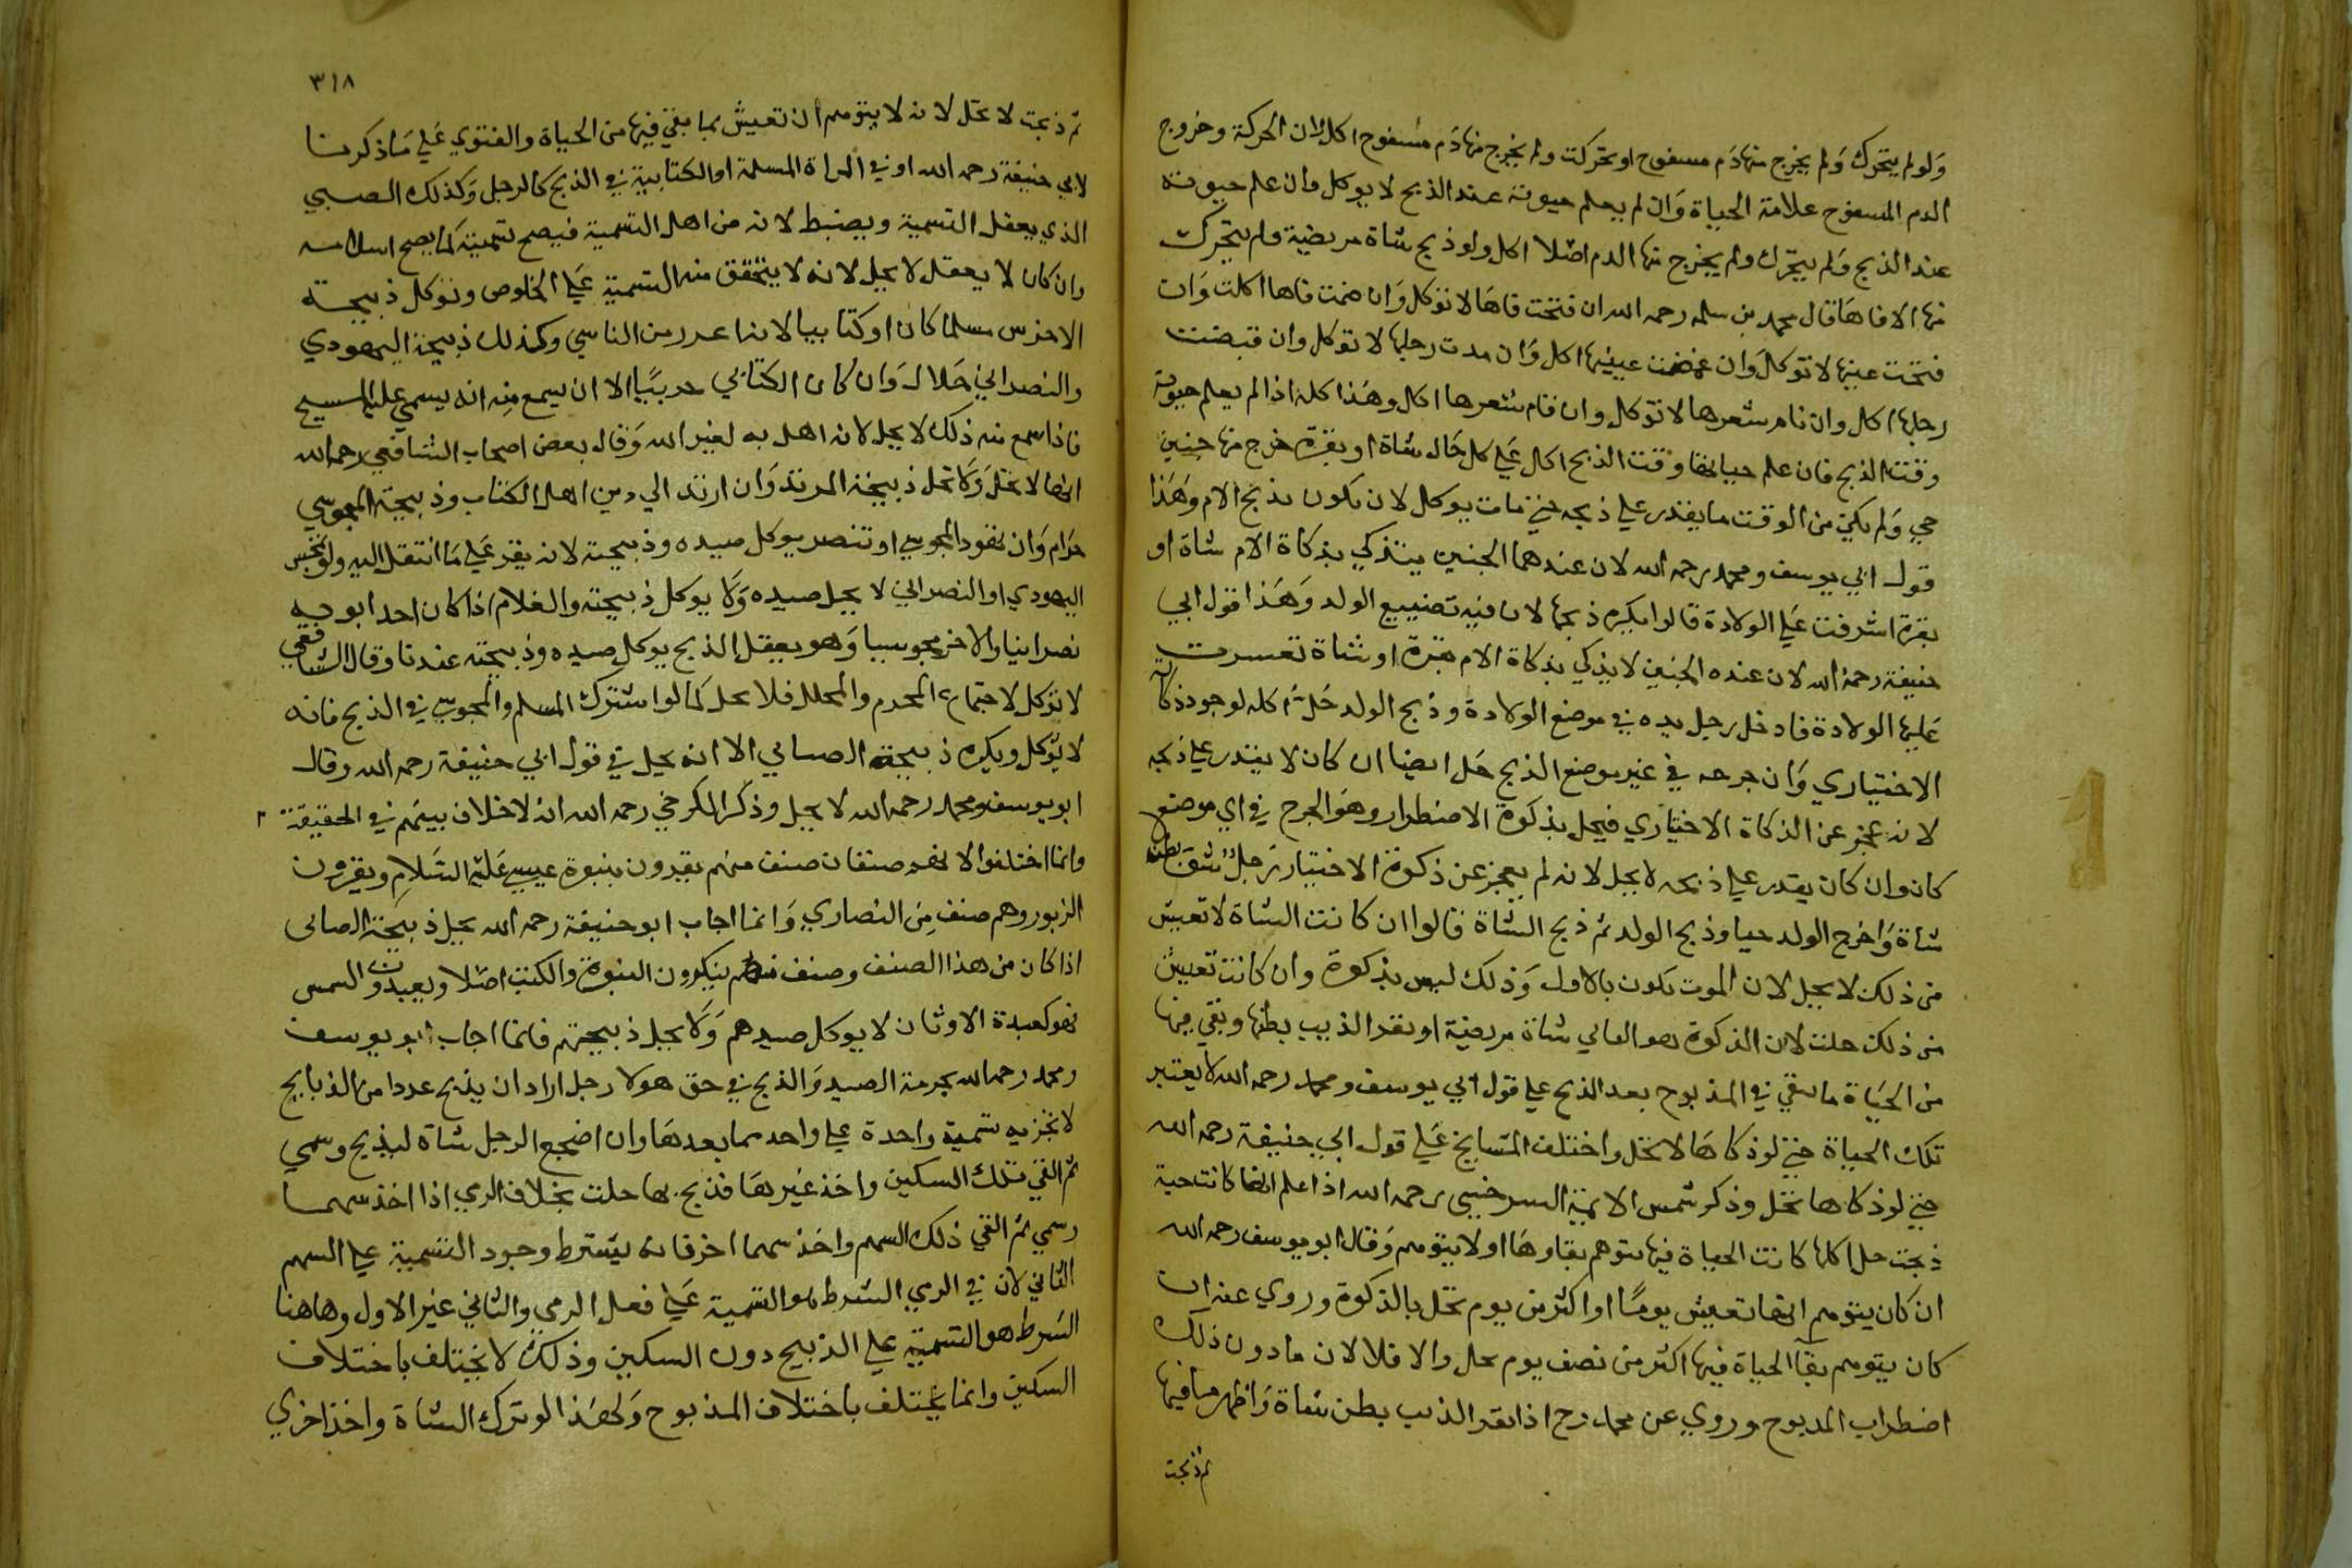 ولو لم يتحرك ولم يخرج منها دم مسفوح او تحركت ولم يخرج منها دم مسفوح اكل لان الحركة وخروج
الدم المسفوح علامة الحياة وان لم يعلم حيوته عند الذبح لا يوكل وان علم حيوته
عند الذبح ولم يتحرك ولم يخرج منها الدم اصلا اكل ولو ذبح شاة مريضة ولم يتحرك
منها الا فاها قال محمد بن سلمه رحمه الله ان فتحت فاها لا توكل وان ضمت فاها اكلت وان
فتحت عينها لا توكل وان غمضت عينيها اكل وان مدت رجليها لا توكل وان قبضت
رجليها اكل وان نام شعرها لا توكل وان قام شعرها اكل وهذا كله اذا لم يعلم حيوته
وقت الذبح فان علم حياتها وقت الذبح اكل علي كل حال شاة او بقرة خرج منها جنين
حي ولم يكن من الوقت ما يقدر علي ذبحه حتي مات يوكل لان يكون بذبح الام وهذا
قول ابي يوسف ومحمد رحمه الله لان عندهما الجنين يتذكي بذكاة الام شاة او
بقرة اشرفت علي الولادة قالوا يكره ذبحها لان فيه تضييع الولد وهذا قول ابي
حنيفة رحمه الله لان عنده الجنين لا يذكي بذكاة الام بقرة او شاة تعسرت
عليها الولادة فادخل رجل يده في موضع الولادة وذبح الولد حل اكله لوجود ذكاة
الاختياري وان جرحه في غير موضع الذبح حل ايضا ان كان لا يقدر علي ذبحه
لانه عجز عن الذكاة الاختياري فيحل بذكوة الاضطرار وهو الجرح في اي موضع
كان وان كان يقدر علي ذبحه لا يحل لانه لم يعجز عن ذكوة الاختيار رجل شق بطن
شاة واخرج الولد حيا وذبح الولد ثم ذبح الشاة قالوا ان كانت الشاة لا تعيش
من ذلك لا يحل لان الموت يكون بالاول وذلك ليس بذكوة وان كانت تعيش
من ذلك حلت لان الذكوة هو الثاني شاة مريضة او بقر الذيب بطنها وبقي فيها
من الحياة ما يبقي في المذبوح بعد الذبح علي قول ابي يوسف ومحمد رحمه الله لا يعتبر
تلك الحياة حتي لو ذكاها لا تحل واختلف المشايخ علي قول ابي حنيفة رحمه الله
حتي لو ذكاها تحل وذكر شمس الايمة السرخسي رحمه الله اذا علم انها كانت حية
ذبحت حل اكلها كانت الحياة فيها يتوهم بقاوها او لا يتوهم وقال ابو يوسف رحمه الله
ان كان يتوهم انها تعيش يوما او اكثر من يوم تحل بالذكوة وروي عنه ان
كان يتوهم بقآ الحياة فيها اكثر من نصف يوم تحل والا فلا لان ما دون ذلك
اضطراب المدبوح وروي عن محمد رح اذا بقر الذيب بطن شاة واظهر ما فيها
ثم ذبحت
٣١٨
ثم ذبحت لا تحل لانه لا يتوهم ان تعيش بما بقي فيها من الحياة والفتوي علي ما ذكرنا
لابي حنيفة رحمه الله او في المراة المسلمة او الكتابية في الذبح كالرجل وكذلك الصبي
الذي يعقل التسمية ويضبط لانه من اهل التسمية فيصح تسميته كما يصح اسلامه
وان كان لا يعقل لا يحل لانه لا يتحقق منه التسمية علي الخلوص وتوكل ذبيحة
الاخرس مسلما كان او كتابيا لانه اعذر من الناسي وكذلك ذبيحة اليهودي
والنصراني حلال وان كان الكتابي حربيا الا ان يسمع منه انه يسمي عليه المسيح
فاذا سمع منه ذلك لا يحل لانه اهل به لغير الله وقال بعض اصحاب الشافعي رحمه الله
انها لا تحل ولا تحل ذبيحة المرتد وان ارتد الي دين اهل الكتاب وذبيحة المجوسي
حرام وان تهود المجوسي او تنصر يوكل صيده وذبيحته لانه يقر علي ما انتقل اليه ولو تمجس
اليهودي او النصراني لا يحل صيده ولا يوكل ذبيحته والغلام اذا كان احد ابويه
نصرانيا والاخر مجوسيا وهو يعقل الذبح يوكل صيده وذبيحته عندنا وقال الشافعي
لا توكل لاجتماع المحرم والمحلل فلا تحل كما لو اشترك المسلم والمجوسي في الذبح فانه
لا يوكل ويكره ذبيحة الصابي الا انه يحل في قول ابي حنيفة رحمه الله وقال
ابو يوسف ومحمد رحمه الله لا يحل وذكر الكرخي رحمه الله ان لا خلاف بينهم في الحقيقة
وانما اختلفوا لانهم صنفان صنف منهم يقرون بنبوة عيسي عليه السلام ويقرون
الزبور وهم صنف من النصاري وانما اجاب ابو حنيفة رحمه الله بحل ذبيحة الصابي
اذا كان من هذا الصنف وصنف منهم ينكرون النبوة والكتب اصلا ويعبدون الشمس
فهو كعبدة الاوثان لا يوكل صيدهم ولا يحل ذبيحتهم فانما اجاب ابو يوسف
ومحمد رحمه الله بحرمة الصيد والذبح في حق هولا رجل اراد ان يذبح عددا من الذبايح
لا تجزيه تسمية واحدة علي واحد مما بعدها وان اضجع الرجل شاة ليذبح وسمي
ثم القي تلك السكين واخذ غيرها فذبح بها حلت بخلاف الرمي اذا اخذ سهما
وسمي ثم القي ذلك السهم واخذ سهما اخر فانه يشترط وجود التسمية علي السهم
الثاني لان في الرمي الشرط هو التسمية علي فعل الرمي والثاني غير الاول وهاهنا
الشرط هو التسمية علي الذبيح دون السكين وذلك لا يختلف باختلاف
السكين وانما يختلف باختلاف المذبوح ولهذا لو ترك الشاة واخذ اخري